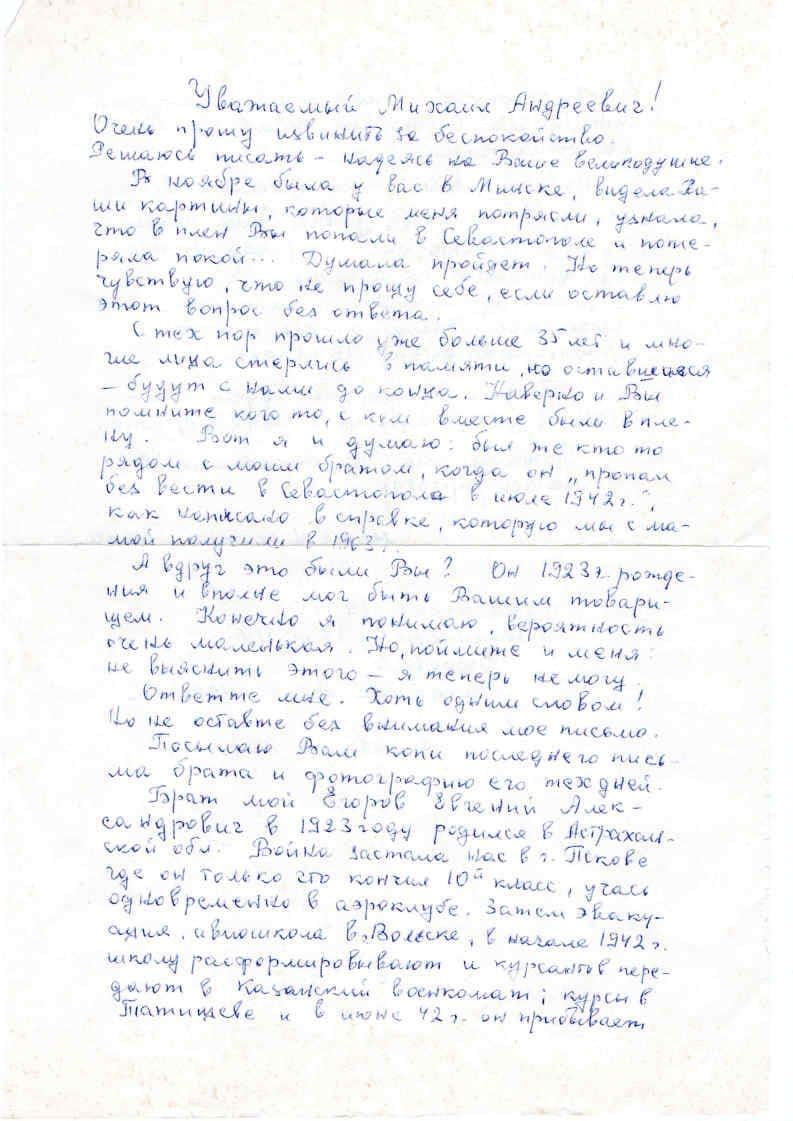 Уважаемый Михаил Андреевич!
Очень прошу извинить за беспокойство.
Решаюсь писать – надеясь на Ваше великодушие.
В ноябре была у вас в Минске, видела Ва-
ши картины, которые меня потрясли, узнала,
что в плен Вы попали в Севастополе и поте-
ряла покой... Думала пройдет. Но теперь
чувствую, что не прощу себе, если оставлю
этот вопрос без ответа.
С тех пор прошло уже больше 35 лет и мно-
гие лица стерлись в памяти, но оставшиеся
– будут с нами до конца. Наверно и Вы
помните кого то, с кем вместе были в пле-
ну. Вот я и думаю: был же кто то
рядом с моим братом, когда он „пропал
без вести в Севастополе в июле 1942 г.",
как написано в справке, которую мы с ма-
мой получили в 1963 г.
А вдруг это были Вы? Он 1923 г. рожде-
ния и вполне мог быть Вашим товари-
щем. Конечно я понимаю, вероятность
очень маленькая. Но, поймите и меня:
не выяснить этого – я теперь не могу.
Ответте мне. Хоть одним словом!
Но не оставте без внимания мое письмо.
Посылаю Вам копи последнего пись-
ма брата и фотографию его тех дней.
Брат мой Егоров Евгений Алек-
сандрович в 1923 году родился в Астрахан-
ской обл. Война застала нас в г. Пскове
где он только что кончил 10й класс, учась
одновременно в аэроклубе. Затем эваку-
ация, авиошкола в г. Вольске, в начале 1942 г.
школу расформировывают и курсантов пере-
дают в Казанский военкомат; курсы в
Татищеве и в июне 42 г. он прибывает